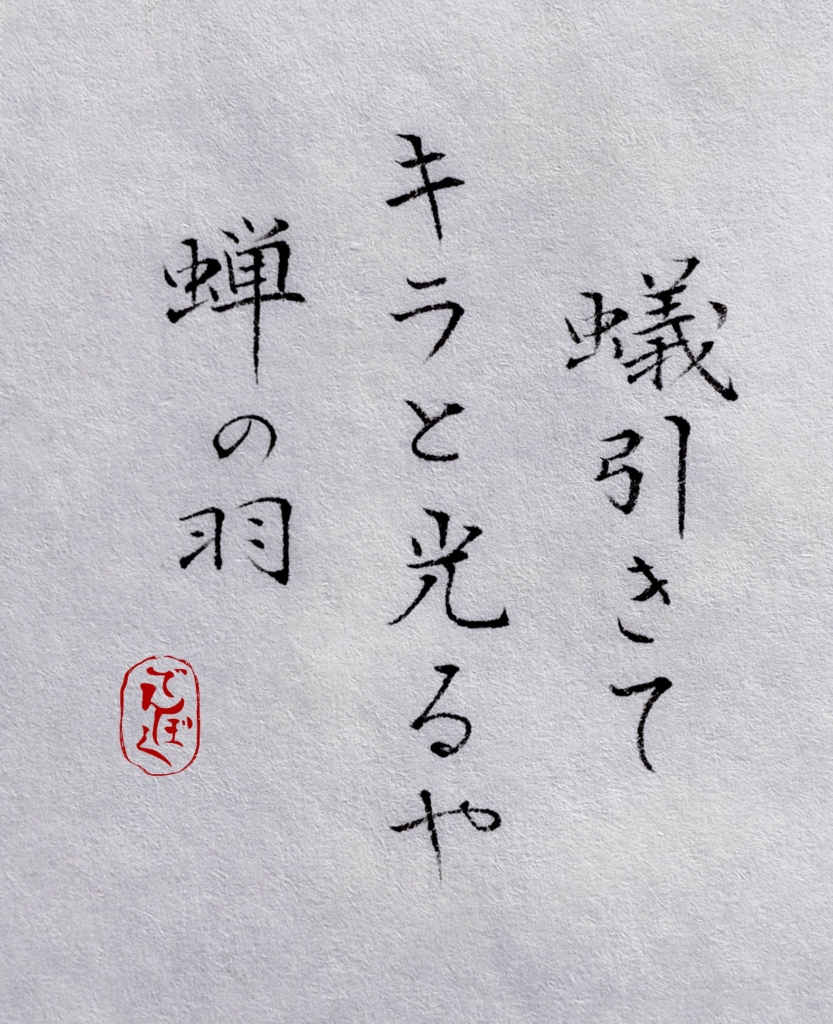 蟻引きて
キラと光るや
蝉の羽
でんぼく